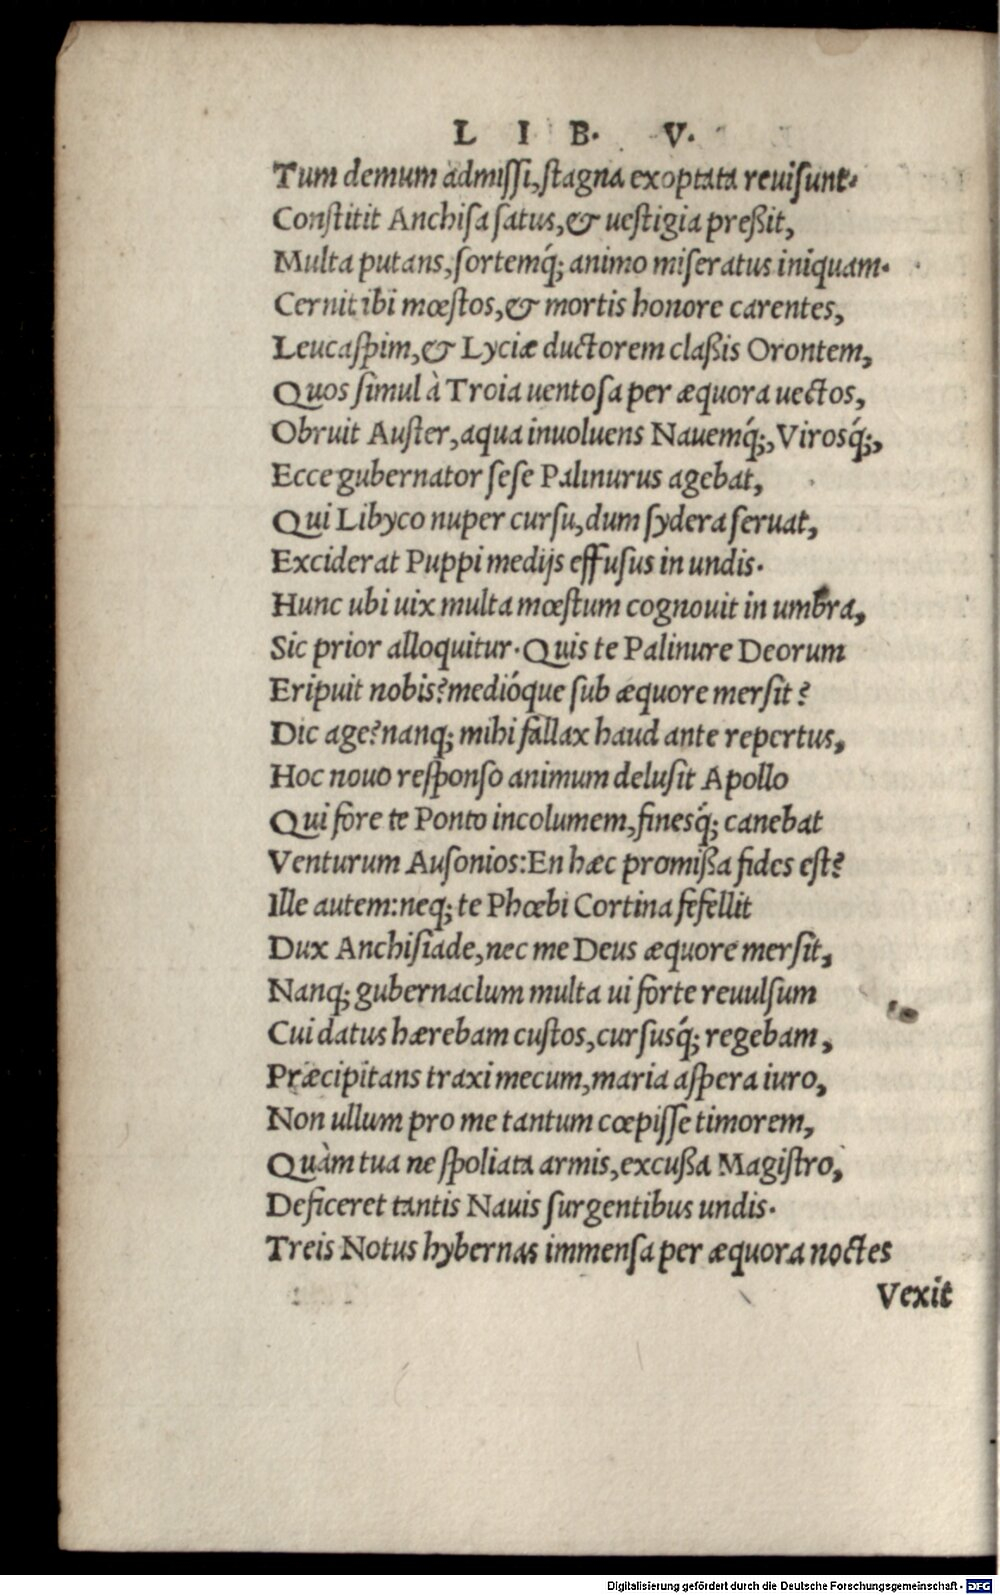 L I B. V.
Tum demum admiſſi,ſtagna exoptata reuiſunt.
Conſtitit Anchiſa ſatus,& ueſtigia preßit,
Multa putans,ſortemq́; animo miſeratus iniquam.
Cernit ibi mœſtos,& mortis honore carentes,
Leucaſpim,& Lyciæ ductorem claßis Orontem,
Quos ſimul à Troia uentoſa per æquora uectos,
Obruit Auſter,aqua inuoluens Nauemq́;,Virosq́;,
Ecce gubernator ſeſe Palinurus agebat,
Qui Libyco nuper curſu,dum ſydera ſeruat,
Exciderat Puppi medijs effuſus in undis.
Hunc ubi uix multa mœſtum cognouit in umbra,
Sic prior alloquitur.Quis te Palinure Deorum
Eripuit nobis?medióque ſub æquore merſit?
Dic age?nanq; mihi fallax haud ante repertus,
Hoc nouo reſponſo animum deluſit Apollo
Qui fore te Ponto incolumem,finesq́; canebat
Venturum Auſonios:En hæc promißa fides eſt?
Ille autem:neq; te Phœbi Cortina fefellit
Dux Anchiſiade,nec me Deus æquore merſit,
Nanq; gubernaclum multa ui forte reuulſum
Cui datus hærebam cuſtos,curſusq́; regebam,
Præcipitans traxi mecum,maria aſpera iuro,
Non ullum pro me tantum cœpiſſe timorem,
Quàm tua ne ſpoliata armis,excußa Magiſtro,
Deficeret tantis Nauis ſurgentibus undis.
Treis Notus hybernas immenſa per æquora noctes
Vexit
Digitalisierung gefördert durch die Deutsche Forschungsgemeinschaft - DFG